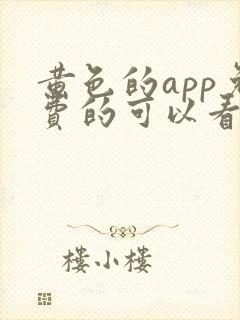 黄色的app免
费的可以看
楼小楼